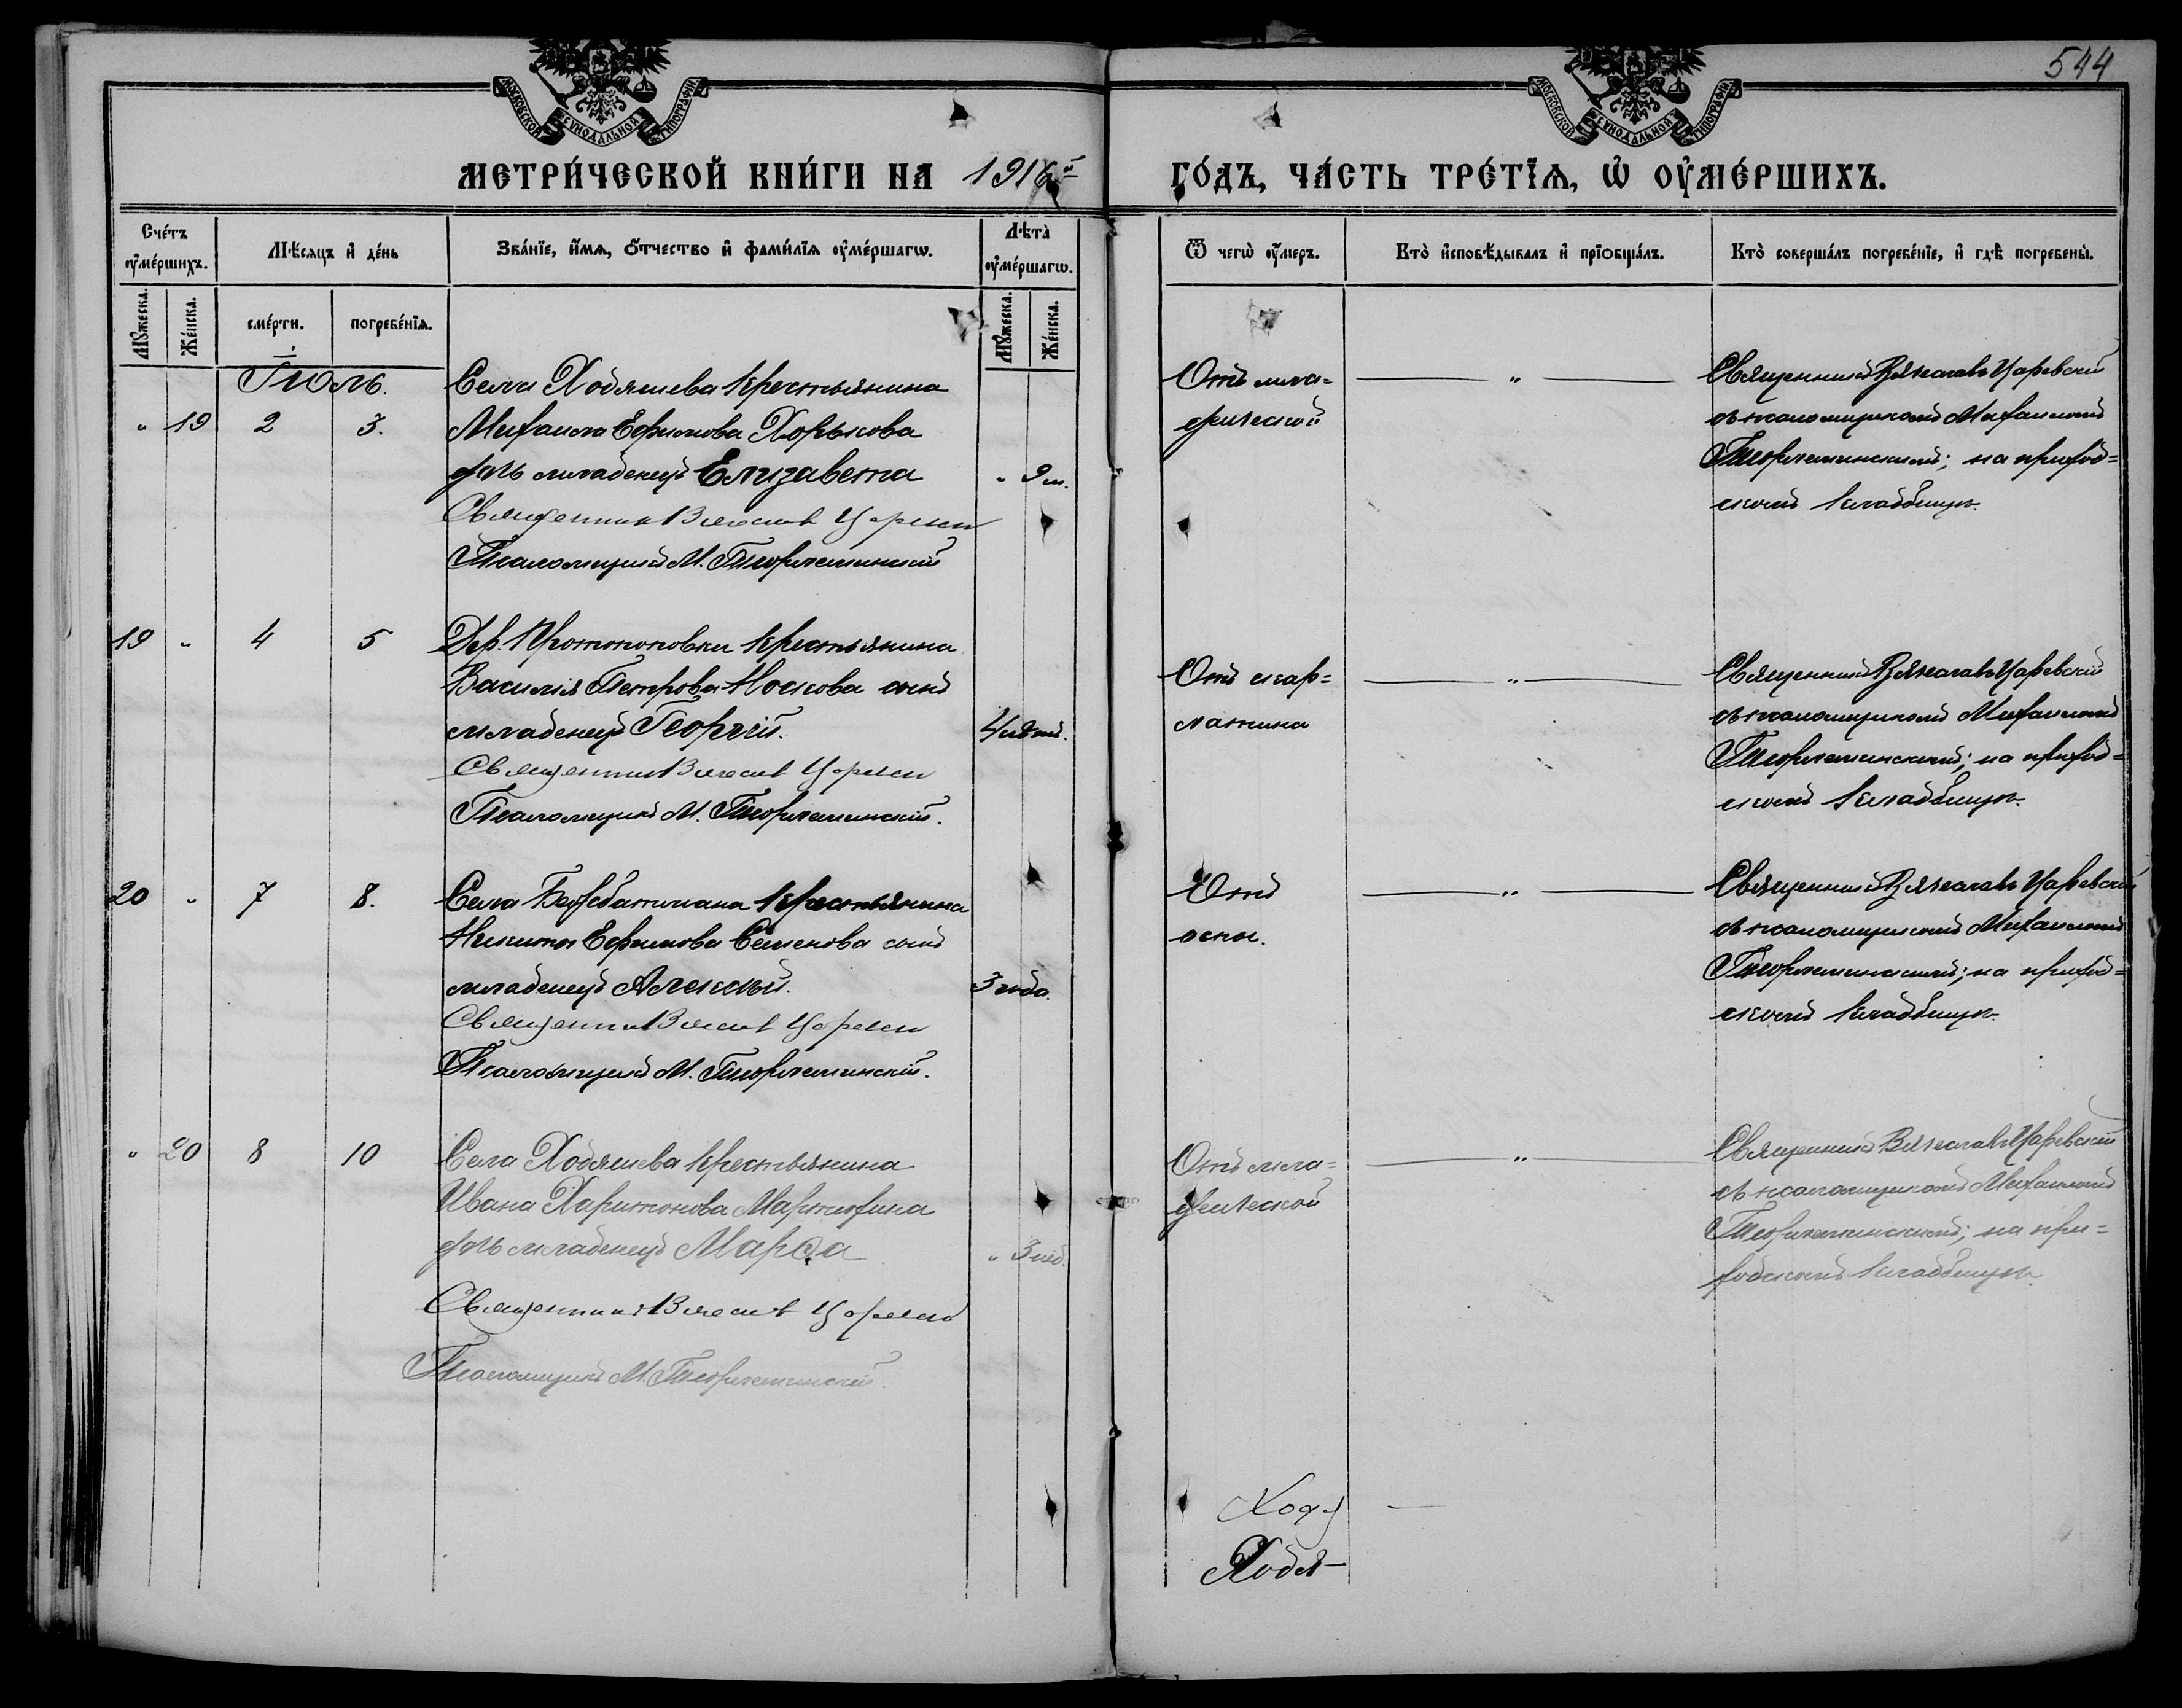 544
МОСКОВСКОЙ СѴНОДАЛЬНОЙ ТИПОГРАФІИ
МОСКОВСКОЙ СѴНОДАЛЬНОЙ ТИПОГРАФІИ
МЕТРИ́ЧЕСКОЙ КНИ́ГИ НА 1916й
ГО́ДЪ, ЧА́СТЬ ТРЕ́ТЇѦ, Ѡ҆ ОУ҆МЕ́РШИХЪ.
Сче́тъ оу҆ме́ршихъ.
Мѣ́сяцъ и҆ де́нь
Зва́нїе, и҆́мѧ, ѻ҆́тчество и҆ фами́лїѧ оу҆ме́ршагѡ.
Лѣта̀ оу҆ме́ршагѡ.
Ѿ чегѡ̀ оу҆́меръ.
Кто̀ и҆сповѣ́дывалъ и҆ прїѻбща́лъ.
Кто̀ соверша́лъ погребе́нїе, и҆ гдѣ̀ погребены̀.
Мꙋ́жеска.
Же́нска.
сме́рти.
погребе́нїѧ.
Мꙋ́жеска.
Же́нска.
Іюль.
" 19 2 3.
Села Ходяшева крестьянина
Михаила Ефимова Хорькова
дочь младенецъ Елизавета " 9 м.
Священникъ Вячеславъ Царевскій
Псаломщикъ М.
Отъ мла=
денческой
"
Священникъ Вячеславъ Царевскій
съ псаломщикомъ Михаиломъ
на приход=
скомъ кладбищѣ.
19 " 4 5
Дер. Протопоповки крестьянина
Василія Петрова Носкова сынъ
младенецъ Георгій. 4
Священникъ Вячеславъ Царевскій
Псаломщикъ М.
Отъ скар=
латина
"
Священникъ Вячеславъ Царевскій
съ псаломщикомъ Михаиломъ
на приход=
скомъ кладбищѣ.
20 " 7 8.
Села крестьянина
Никиты Ефимова Семенова сынъ
младенецъ Алексѣй. 3 года.
Священникъ Вячеславъ Царевскій
Псаломщикъ М.
Отъ
оспы.
"
Священникъ Вячеславъ Царевскій
съ псаломщикомъ Михаиломъ
на приход=
скомъ кладбищѣ.
" 20 8 10
Села Ходяшева крестьянина
Ивана Харитонова Мартюхина
дочь младенецъ Марѳа " 3 нед.
Священникъ Вячеславъ Царевскій
Псаломщикъ М.
Отъ мла=
денческой
"
Священникъ Вячеславъ Царевскій
съ псаломщикомъ Михаиломъ
на при=
ходскомъ кладбищѣ.
Ходя-